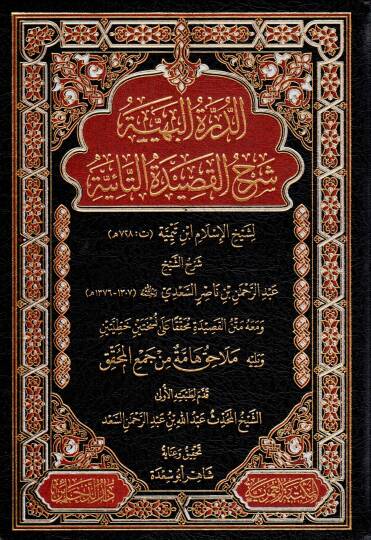 الدرة البهية
شرح القصيدة التائية
لشيخ الإسلام ابن تيمية (ت: ٧٢٨ هـ)
شرح الشيخ
عبد الرحمن بن ناصر السعدي رحمه الله (١٣٠٧-١٣٧٦ هـ)
ومعه متن القصيدة محققا على نسختين خطيتين
ويليه ملاحق هامة من جمع المحقق
قدم لطبعته الأولى
الشيخ المحدث عبد الله بن عبد الرحمن السعد
تحقيق وعناية
شاهر أبو سعدة